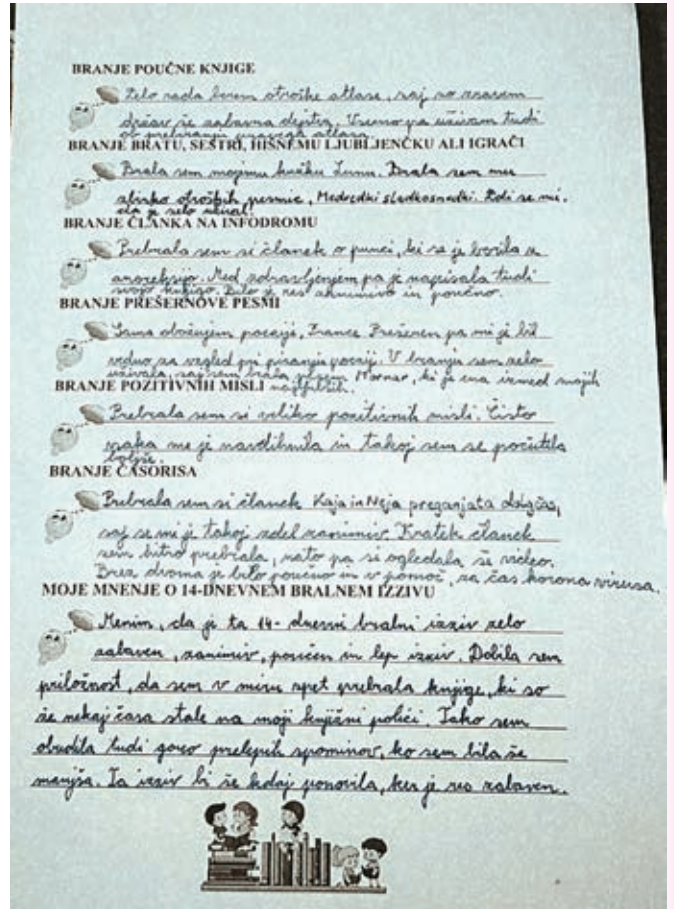 BRANJE POUČNE KNJIGE
Zelo rada berem otroške atlase, saj so zraven
držav še zabavna dejstva. Vseeno pa uživam tudi
ob prebiranju pravega atlasa.
BRANJE BRATU, SESTRI, HIŠNEMU LJUBLJENČKU ALI IGRAČI
Brala sem mojemu kužku Lunu. Brala sem mu
zbirko otroških pesmic, Medvedki sladkosnedki. Zdi se mi,
da je zelo užival.
BRANJE ČLANKA NA INFODROMU
Prebrala sem si članek o punci, ki se je borila z
anoreksijo. Med zdravljenjem pa je napisala tudi
svojo knjigo. Bilo je res zanimivo in poučno.
BRANJE PREŠERNOVE PESMI
Sama obožujem poezijo, France Prešeren pa mi je bil
vedno za vzgled pri pisanju poezij. V branju sem zelo
uživala, saj sem brala pesem Mornar, ki je ena izmed mojih
najljubših.
BRANJE POZITIVNIH MISLI
Prebrala sem si veliko pozitivnih misli. Čisto
vsaka me je navdihnila in takoj sem se počutila
boljše.
BRANJE ČASORISA
Prebrala sem si članek Kaja in Neja preganjata dolgčas,
saj se mi je takoj zdel zanimiv. Kratek članek
sem hitro prebrala, nato pa si ogledala še video.
Brez dvoma je bilo poučno in v pomoč, za čas korona virusa.
MOJE MNENJE O 14-DNEVNEM BRALNEM IZZIVU
Menim, da je ta 14-dnevni bralni izziv zelo
zabaven, zanimiv, poučen in lep izziv. Dobila sem
priložnost, da sem v miru spet prebrala knjige, ki so
že nekaj časa stale na moji knjižni polici. Tako sem
obudila tudi goro prelepih spominov, ko sem bila še
manjša. Ta izziv bi še kdaj ponovila, ker je res zabaven.